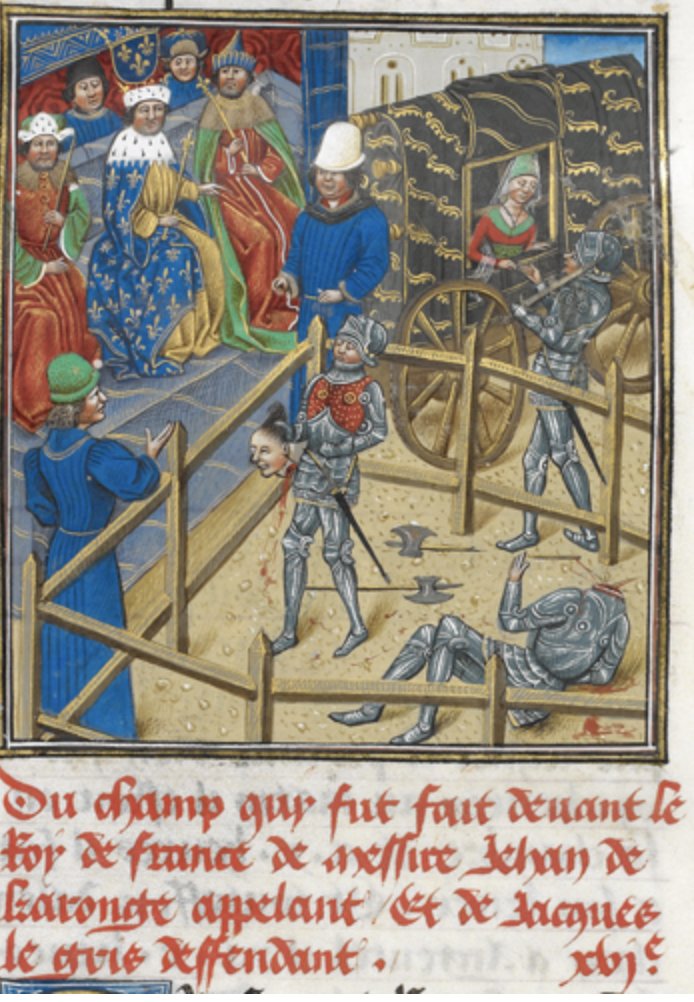 Du champ quy fut fait devant le
Roy de france de messire Jehan de
karonge appelant / Et de Jacques
le gris deffendant . xvj.e